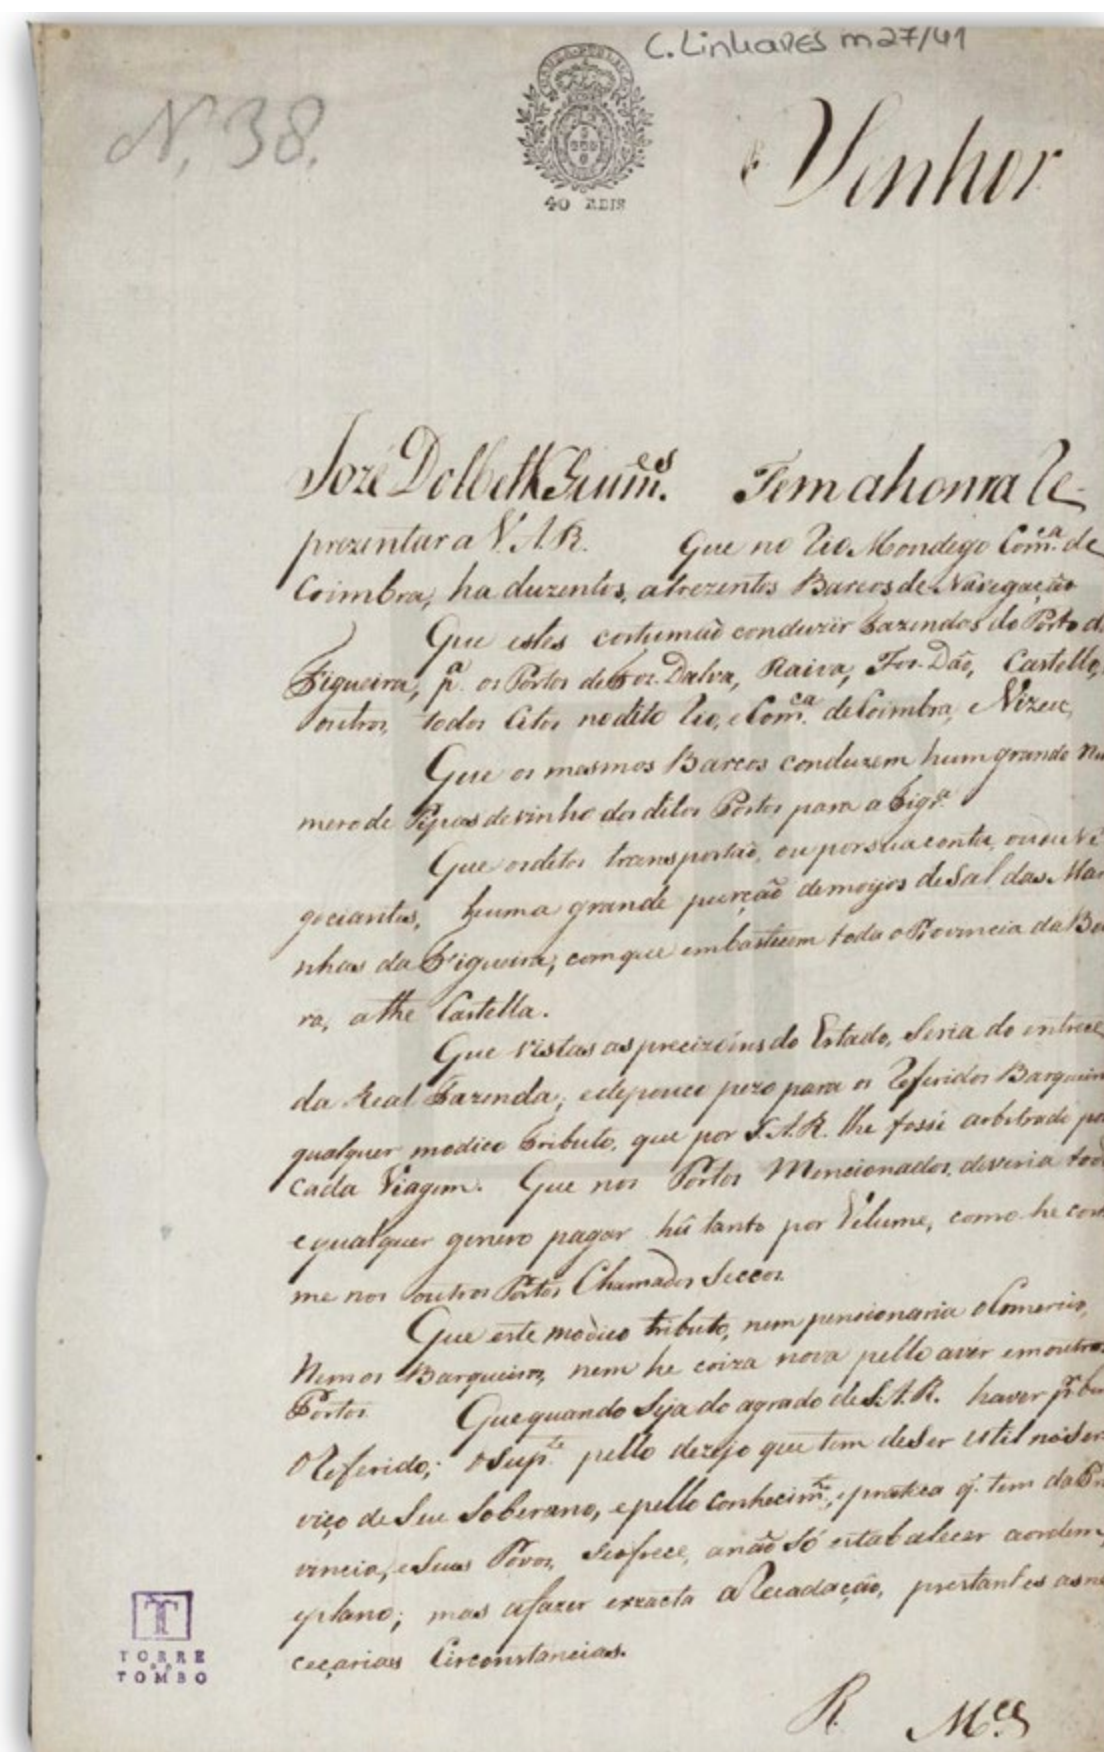 C. Linhares m 27/41
N. 38.
40 REIS
Senhor
Jozé Dolbeth Guim.es Tem a honra Re-
prezentar a V.A.R. Que no Rio Mondego Com.ca de
Coimbra, ha duzentos, a trezentos Barcos de Navegação
Que estes costumão conduzir Fazendas do Porto d
Figueira, p.a os Portos de Foz Dalva, Raiva, Foz Dão, Castello,
outros, todos Citos no dito Rio, e Com.ca de Coimbra, e Vizeu,
Que os mesmos Barcos conduzem hum grande Nu
mero de Pipas de vinho dos ditos Portos para a Fig.ra
Que os ditos transportão, ou por sua conta, ou ou Ne
gociantes, huma grande purção de moyos de Sal das Mar
nhas da Figueira, com que embastecem toda o Provincia da Be
ra, athe Castella.
Que vistas as precizoins do Estado, Seria do entrece
da Real Fazenda, e de pouco pezo para os Referidos Barqueir
qualquer modico tributo, que por S.A.R. lhe fosse arbitrado po
cada Viagem. Que nos Portos Mencionados, deveria tod
e qualquer genero pagar hũ tanto por Vilume, como he cor
me nos outros Portos Chamados Seccos
Que este modico tributo, nem pencionaria o Comercio,
Nem os Barqueiros, nem he coiza nova pello aver em outros
Portos Que quando Seja do agrado de S.A.R. haver p.r be
o Referido; o Sup.te pello dezejo que tem de Ser util no Ser
viço de Seu Soberano, e pello conhecim.to, e pratica q. tem da Pr
vincia, e Suas Povos, Se ofrece, a não Só estabalecer a ordem
e plano; mas a fazer exzacta a Recadação, prestantes as ne
ceçarias Circonstancias.
R. M.ce
TORRE
DO
TOMBO